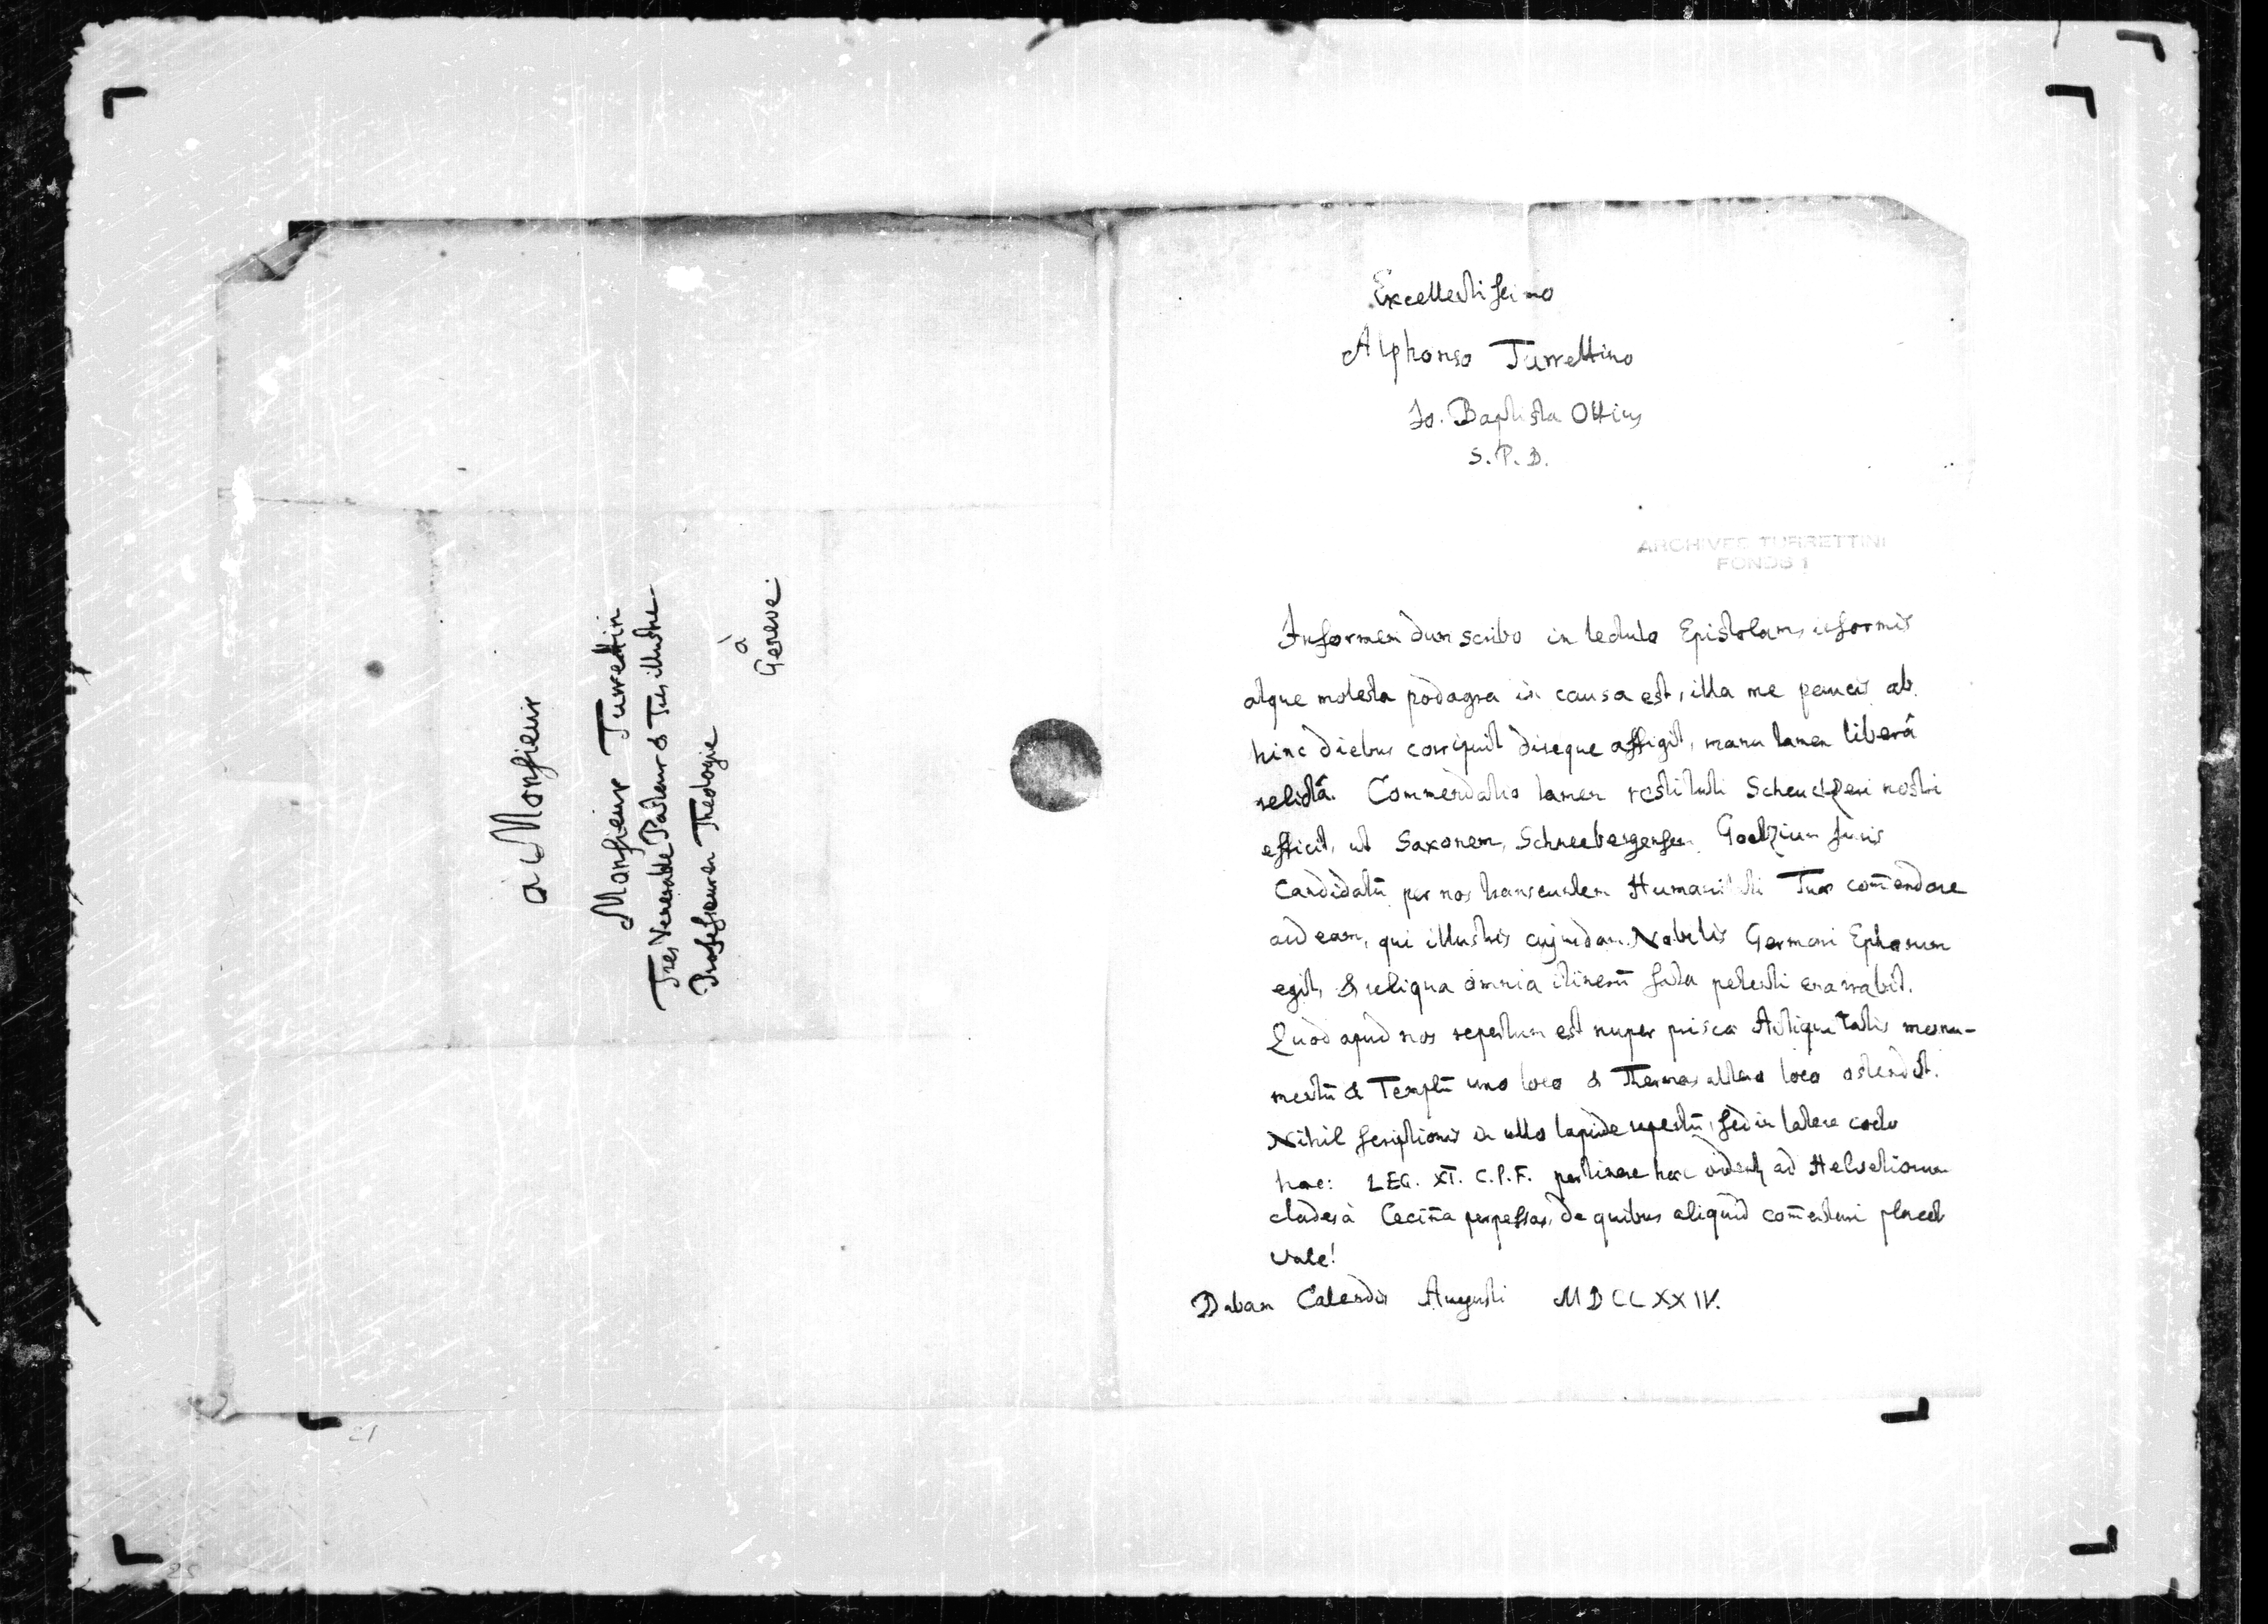 à Monsieur
Monsieur Turrettin
Tres Venerable Pasteur & Tres illustre
Professeur en Theologie
à
Geneve.
Excellentissimo
Alphonso Turrettino
Jo. Baptista Ottius
S. P. D.
ARCHIVES TURRETTINI
FONDS 1
Informem dum scribo in lectulo Epistolam, informis
atque molesta podagra in causa est, illa me paucis ab
hinc diebus corripuit direque affigit, manu tamen liberâ
relictâ. Commendatio tamen restituti Scheuchzeri nostri
efficit, ut Saxonem, Schneebergensem Goetzium Juris
Candidatū per nos transeuntem Humanitati Tuae com̄endare
audeam, qui illustris cujusdam Nobilis Germani Ephorum
egit, & reliqua omnia itinerū fata petenti enarrabit.
Quod apud nos repertum est nuper priscae Antiquitatis monu-
mentū & Templū uno loco & Thermas altero loco ostendit.
Nihil scriptionis in ullo lapide repertū, sed in latere cocto
haec: LEG. XI. C.P.F. pertinere haec ad Helvetiorum
clades à Cecin̄a perpessas, de quibus aliquid com̄entari placet
Vale!
Dabam Calendis Augusti MDCCXXIV.